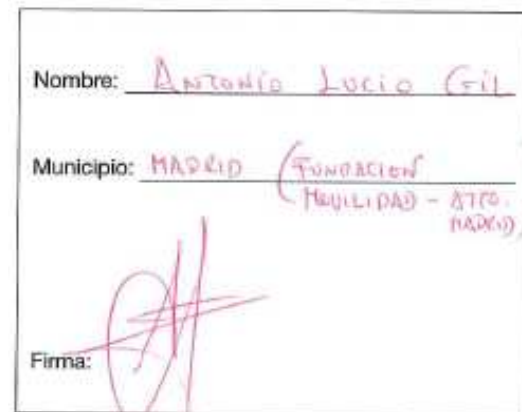 Nombre: ANTONIO LUCIO GIL
Municipio: MADRID (FUNDACION
MOVILIDAD - AYTO.
MADRID)
Firma: